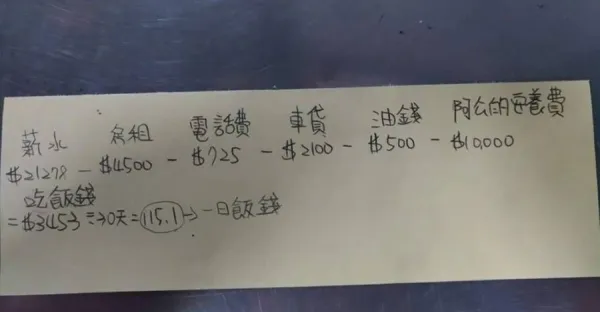 薪水 房租 電話費 車貸 油錢 阿公的安養費
$21278 - $4500 - $725 - $2100 - $500 - $10,000
吃飯錢
= $3453 ÷ 30天 = 115.1 → 一日飯錢